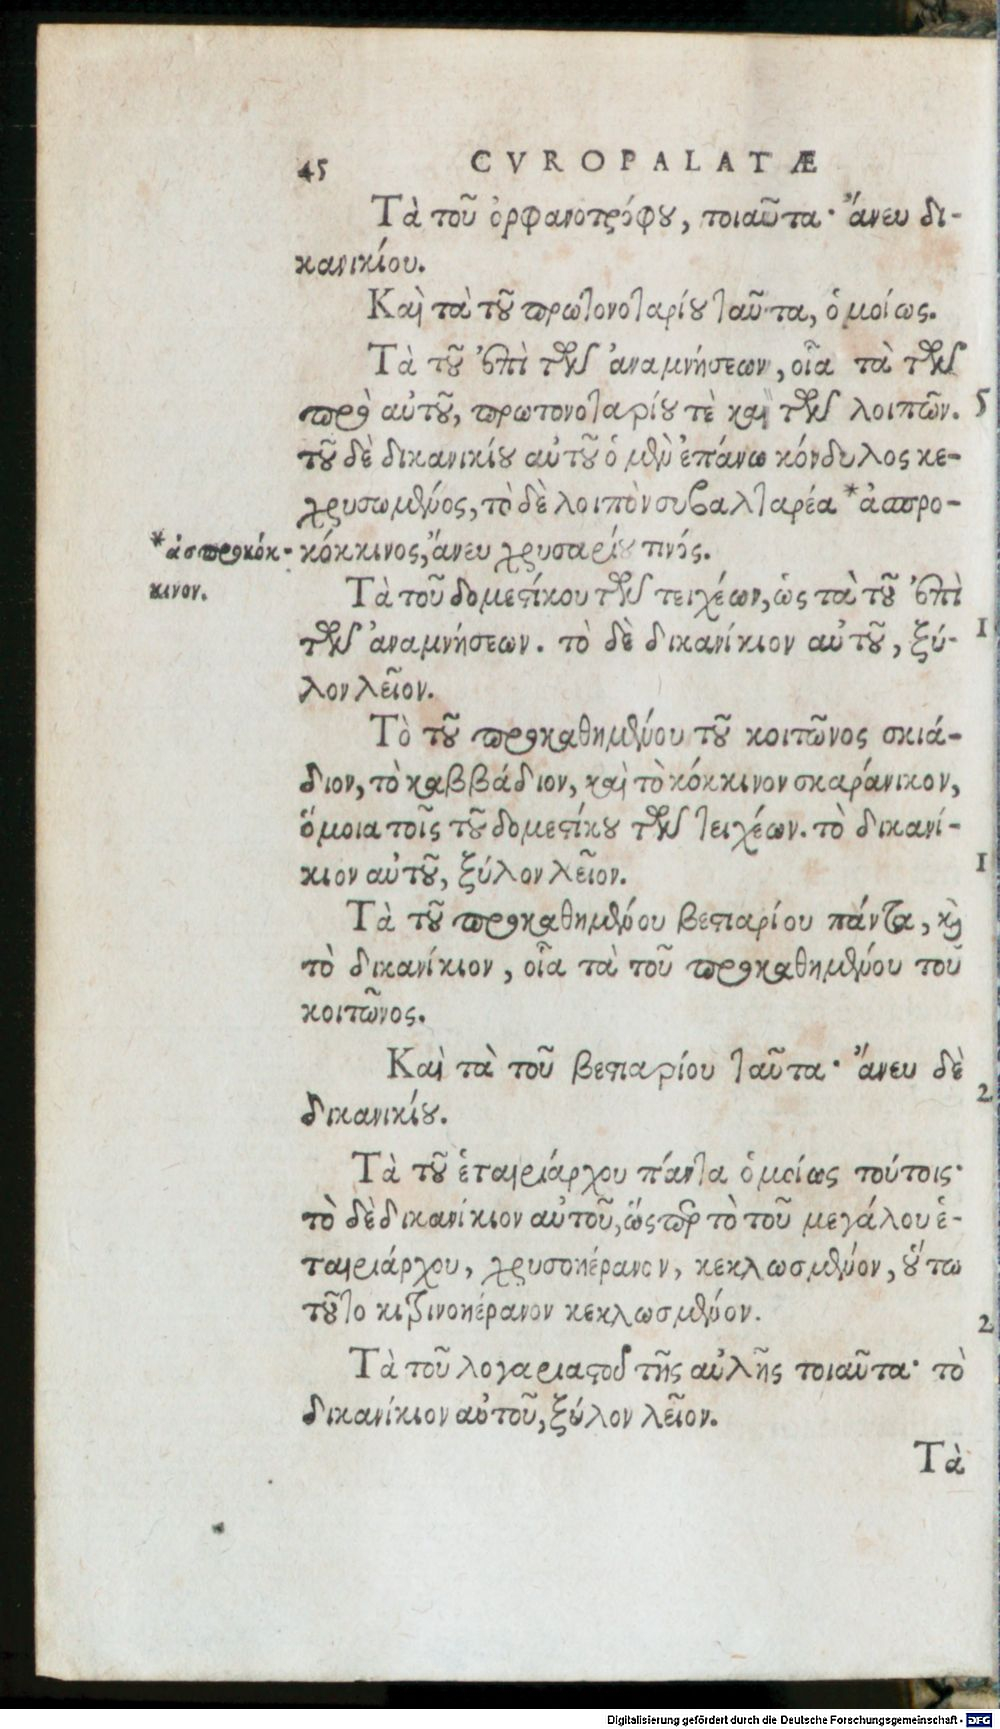 45 CVROPALATÆ
Τὰ τοῦ ὀρφανοτρόφου, τοιαῦτα· ἄνευ δι-
κανικίου.
Καὶ τὰ τοῦ πρωτονοταρίου ταῦτα, ὁμοίως.
Τὰ τοῦ ἐπὶ τῶν ἀναμνήσεων, οἷα τὰ τῶν
πρὸ αὐτοῦ, πρωτονοταρίου τὲ καὶ τῶν λοιπῶν. 5
τοῦ δὲ δικανικίου αὐτοῦ ὁ μὲν ἐπάνω κόνδυλος κε-
χρυσωμένος, τὸ δὲ λοιπὸν συβαλταρέα *ἀσπρο-
*ἀσπροκόκ- κόκκινος, ἄνευ χρυσαρίου τινός.
κινον.
Τὰ τοῦ δομεστίκου τῶν τειχέων, ὡς τὰ τοῦ ἐπὶ
τῶν ἀναμνήσεων. τὸ δὲ δικανίκιον αὐτοῦ, ξύ- 1
λον λεῖον.
Τὸ τοῦ προκαθημένου τοῦ κοιτῶνος σκιά-
διον, τὸ καββάδιον, καὶ τὸ κόκκινον σκαράνικον,
ὅμοια τοῖς τοῦ δομεστίκου τῶν τειχέων. τὸ δικανί-
κιον αὐτοῦ, ξύλον λεῖον. 1
Τὰ τοῦ προκαθημένου βεστιαρίου πάντα, καὶ
τὸ δικανίκιον, οἷα τὰ τοῦ προκαθημένου τοῦ
κοιτῶνος.
Καὶ τὰ τοῦ βεστιαρίου ταῦτα· ἄνευ δὲ
δικανικίου. 2
Τὰ τοῦ ἑταιριάρχου πάντα ὁμοίως τούτοις·
τὸ δὲ δικανίκιον αὐτοῦ, ὥσπερ τὸ τοῦ μεγάλου ἑ-
ταιριάρχου, χρυσοκέρανον, κεκλωσμένον, οὕτω
τοῦτο κιτρινοκέρανον κεκλωσμένον. 2
Τὰ τοῦ λογαριαστοῦ τῆς αὐλῆς τοιαῦτα· τὸ
δικανίκιον αὐτοῦ, ξύλον λεῖον.
Τὰ
Digitalisierung gefördert durch die Deutsche Forschungsgemeinschaft - DFG